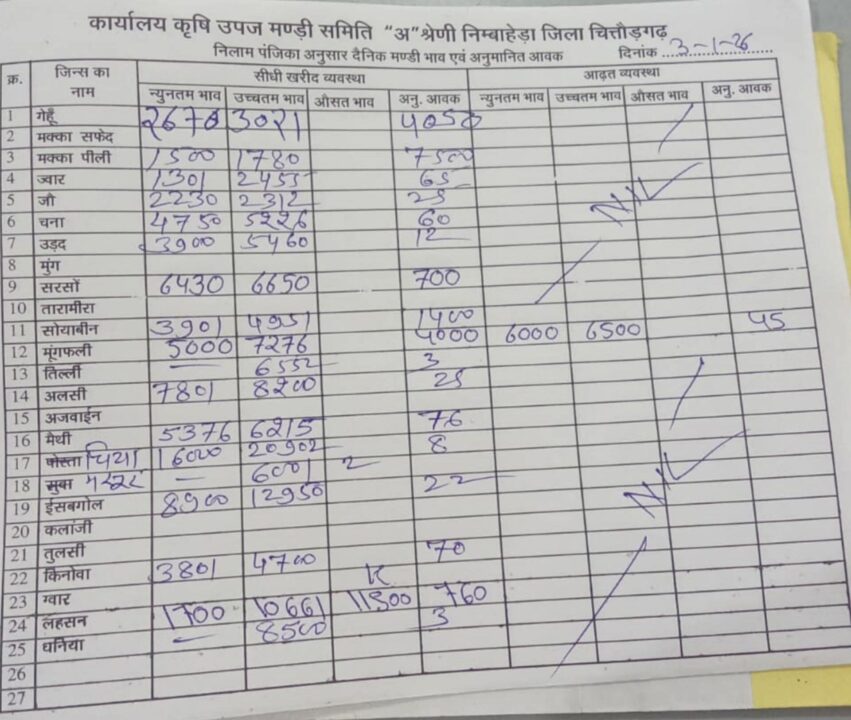 कार्यालय कृषि उपज मण्डी समिति “अ”श्रेणी निम्बाहेड़ा जिला चित्तौड़गढ़
निलाम पंजिका अनुसार दैनिक मण्डी भाव एवं अनुमानित आवक दिनांक 3-1-26
क्र. जिन्स का नाम सीधी खरीद व्यवस्था आढ़त व्यवस्था
न्युनतम भाव उच्चतम भाव औसत भाव अनु. आवक न्युनतम भाव उच्चतम भाव औसत भाव अनु. आवक
1 गेहूँ 2670 3021 4050
2 मक्का सफेद
3 मक्का पीली 1500 1780 7500
4 ज्वार 1301 2455 65
5 जौ 2230 2312 25 NIL
6 चना 4750 5226 60
7 उड़द 3900 5460 12
8 मुंग
9 सरसों 6430 6650 700
10 तारामीरा
11 सोयाबीन 3901 4951 1400
12 मूंगफली 5000 7276 4000 6000 6500 45
13 तिल्ली — 6552 3
14 अलसी 7801 8200 25
15 अजवाईन
16 मैथी 5376 6215 76
17 पोस्ता चिया 16000 20902 8
18 सुवा मसूर — 6001 2
19 ईसबगोल 8900 12950 22 NIL
20 कलांजी
21 तुलसी
22 किनोवा 3801 4700 70
23 ग्वार
24 लहसन 1700 10661 11500 760
25 धनिया — 8500 3
26
27